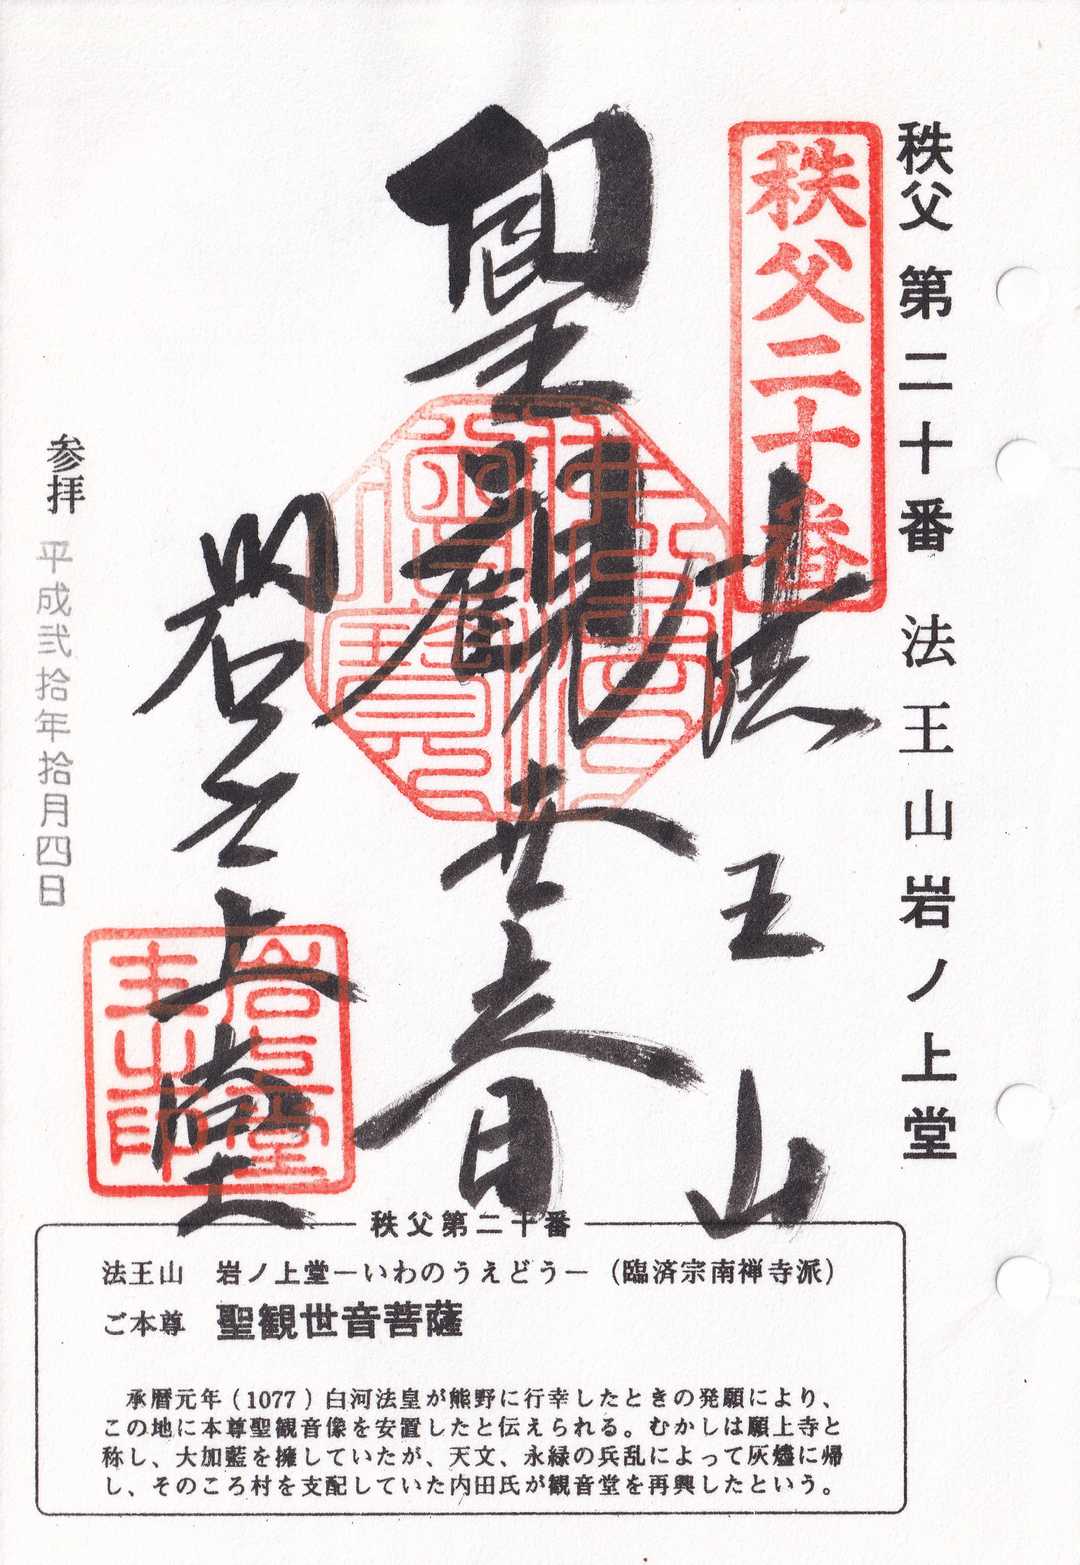 秩父第二十番 法王山岩ノ上堂
秩父二十番
法王山
聖観世音
岩之上堂
参拝 平成弐拾年拾月四日
秩父第二十番
法王山 岩ノ上堂－いわのうえどう－（臨済宗南禅寺派）
ご本尊 聖観世音菩薩
承暦元年(1077)白河法皇が熊野に行幸したときの発願により、
この地に本尊聖観音像を安置したと伝えられる。むかしは願上寺と
称し、大加藍を擁していたが、天文、永緑の兵乱によって灰燼に帰
し、そのころ村を支配していた内田氏が観音堂を再興したという。